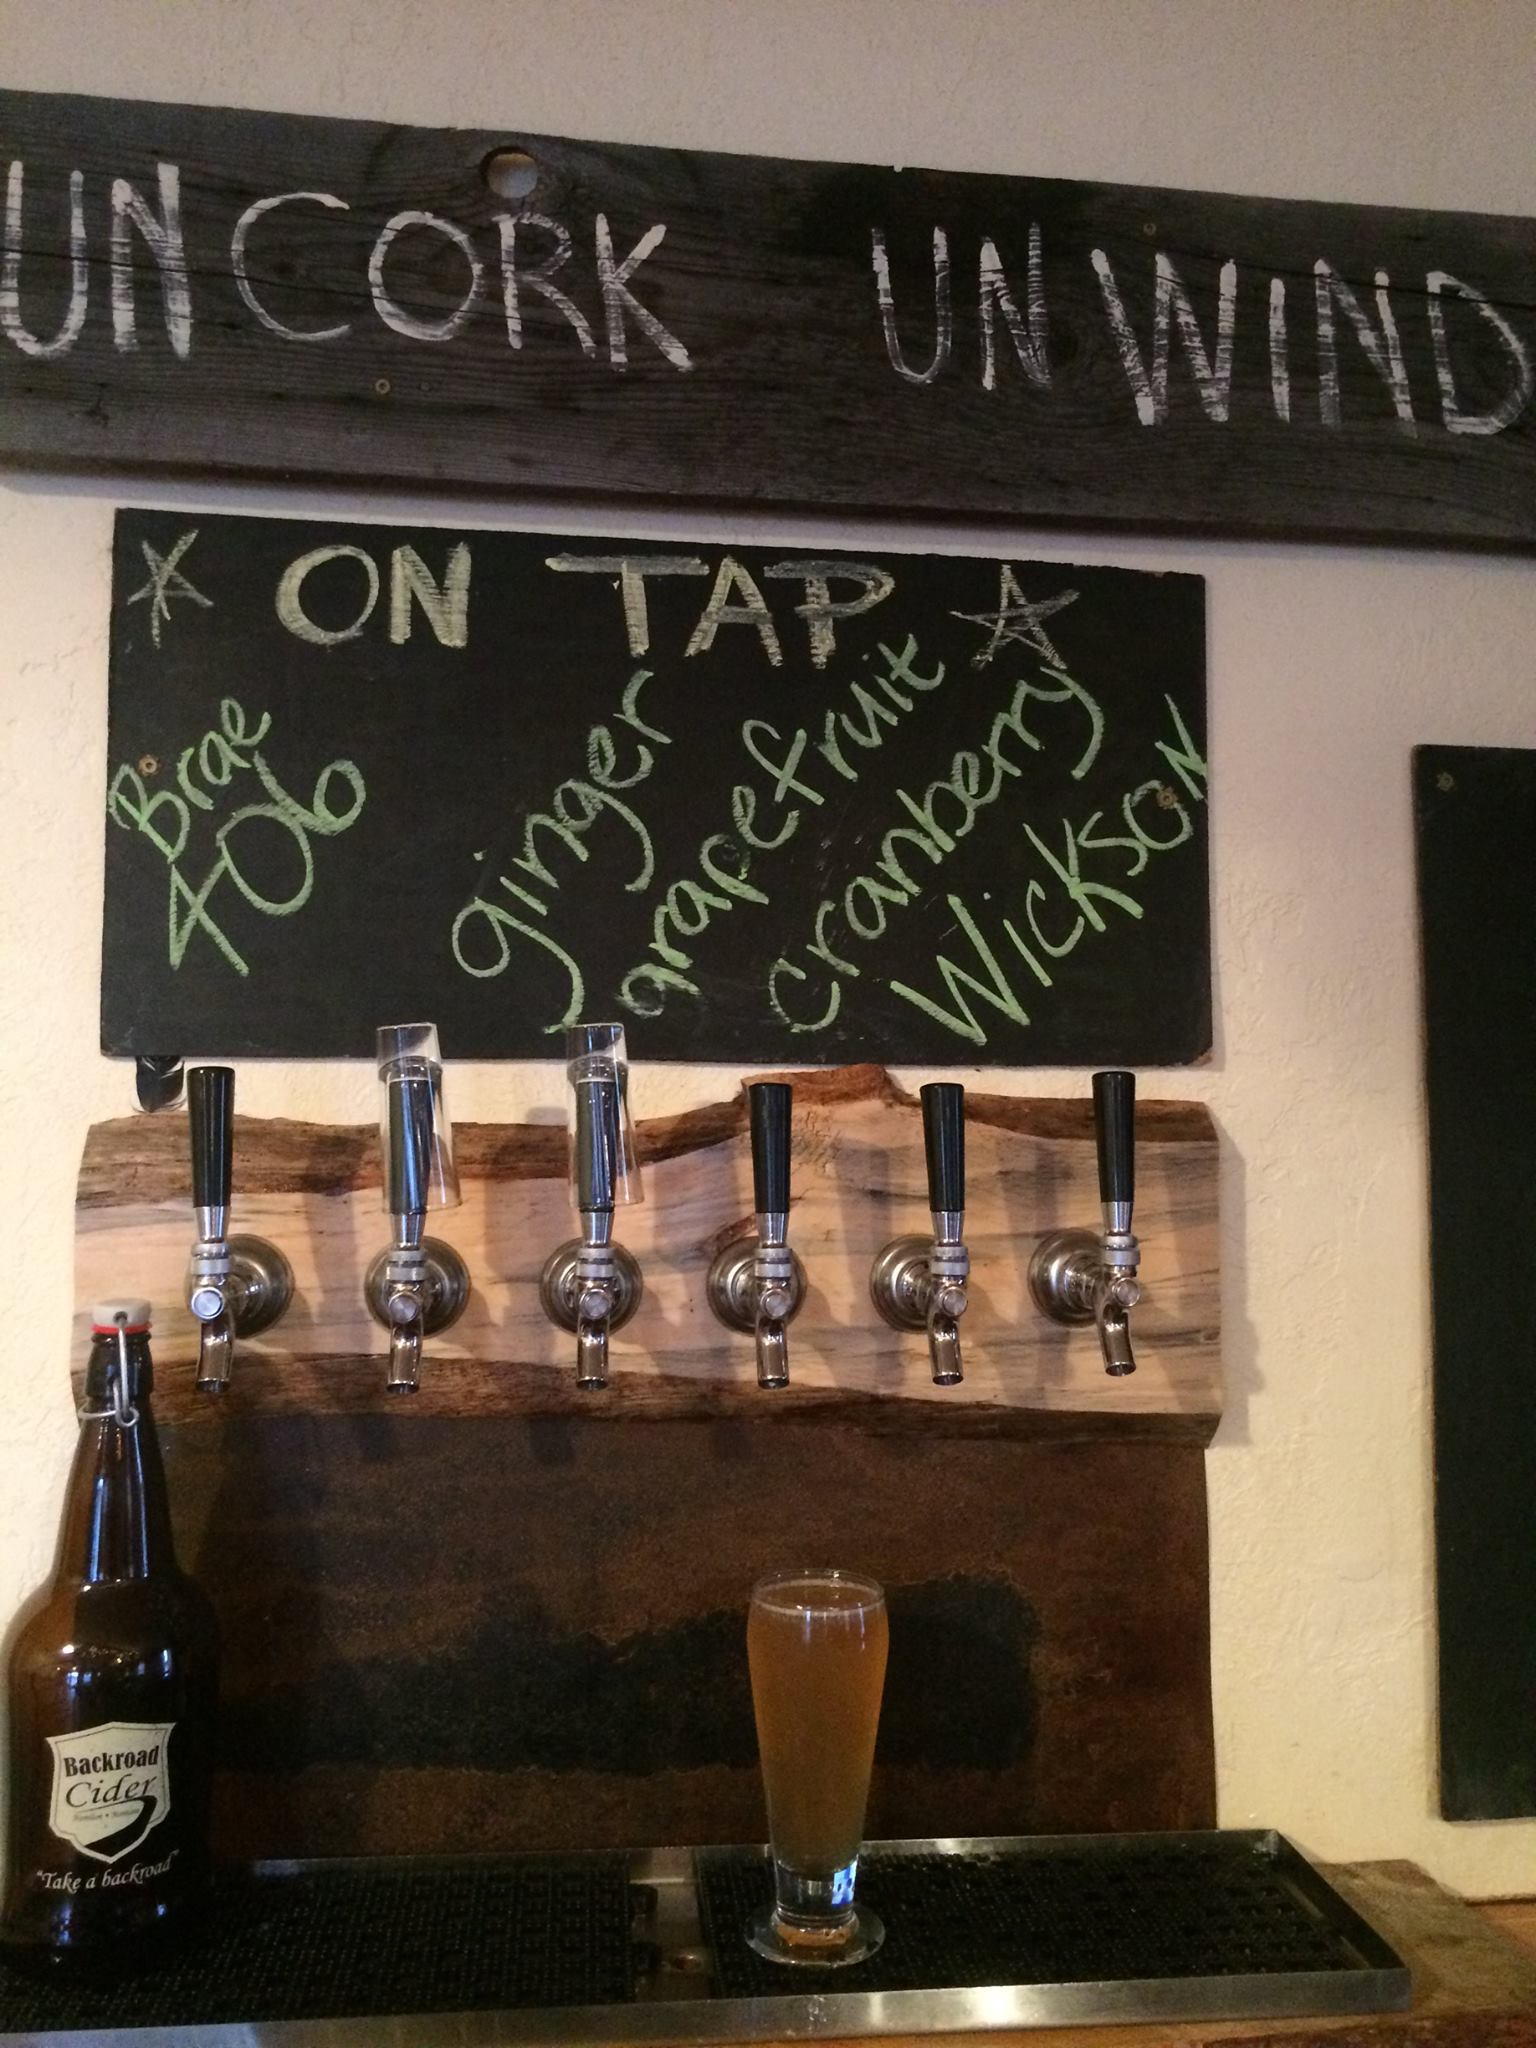 UNCORK UNWIND
ON TAP
Brae
406
ginger
grapefruit
cranberry
Wickson
Backroad
Cider
Hamilton • Montana
"Take a backroad"